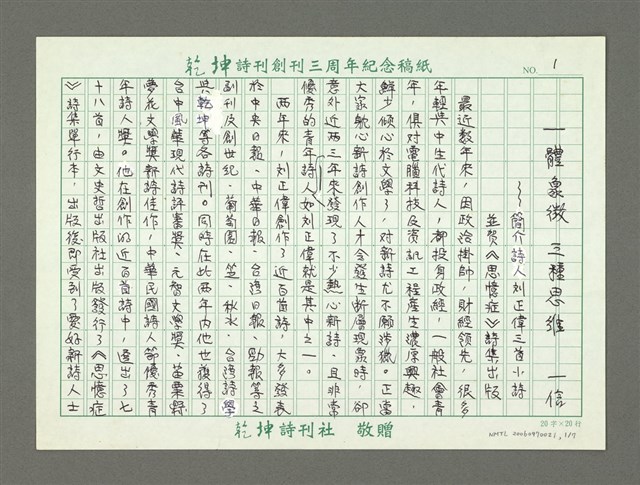 乾坤詩刊創刊三周年紀念稿紙
NO. 1
一體象徵 三種思維 一信
～～簡介詩人刘正偉三首小詩
並賀《思憶症》詩集出版
最近数年來，因政治掛帥，財經領先，很多
年輕與中生代詩人，都投身政經，一般社會青
年，俱对電腦科技及資訊工程產生濃厚興趣，
鮮少傾心於文學了，对新詩尤不願涉獵。正當
大家躭心新詩創作人才会發生断層現象時，卻
意外近两三年來發現了不少熱心新詩、且非常
優秀的青年詩人，如刘正偉就是其中之一。
两年來，刘正偉創作了近百首詩，大多發表
於中央日報、中華日報、台湾日報、勁報等之
副刊及創世紀、葡萄園、笠、秋水、台湾詩學
與乾坤等各詩刊。同時在此两年内他也獲得了
台中風華現代詩評審獎、元智文學獎、苗栗縣
夢花文學獎新詩佳作，中華民國詩人節優秀青
年詩人獎。他在創作的近百首詩中，選出了七
十八首，由文史哲出版社出版發行了《思憶症
》詩集單行本，出版後即受到了愛好新詩人士
20字×20行
乾坤詩刊社 敬贈
NMTL 20060470021, 1/7